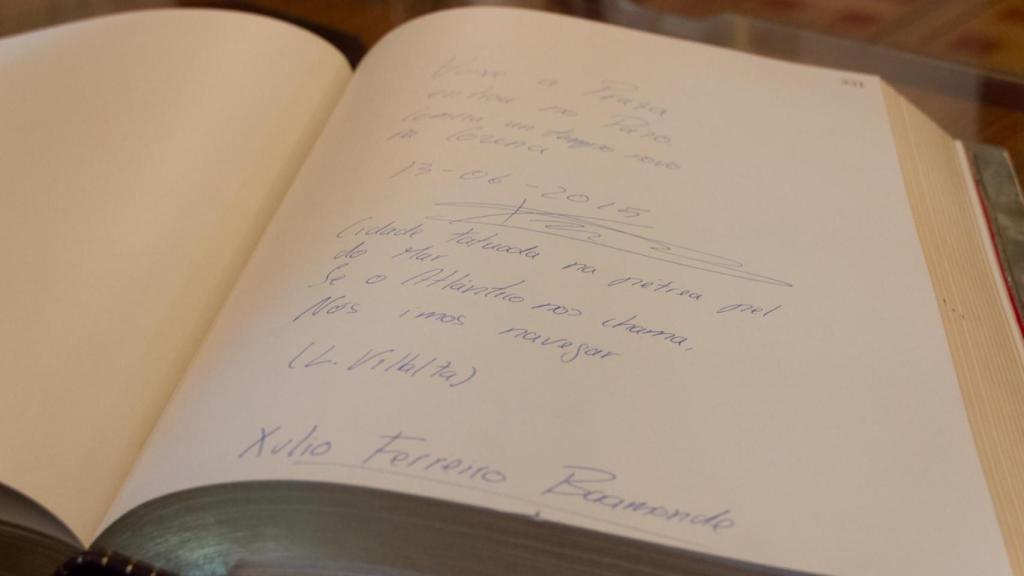 331
a Praza
entrou no Pazo
un tempo novo
na Coruña
13-06-2015
Cidade tatuada na pétrea pel
do Mar
Se o Atlántico nos chama,
Nós imos navegar
(L. Villalta)
Xulio Ferreiro Baamonde